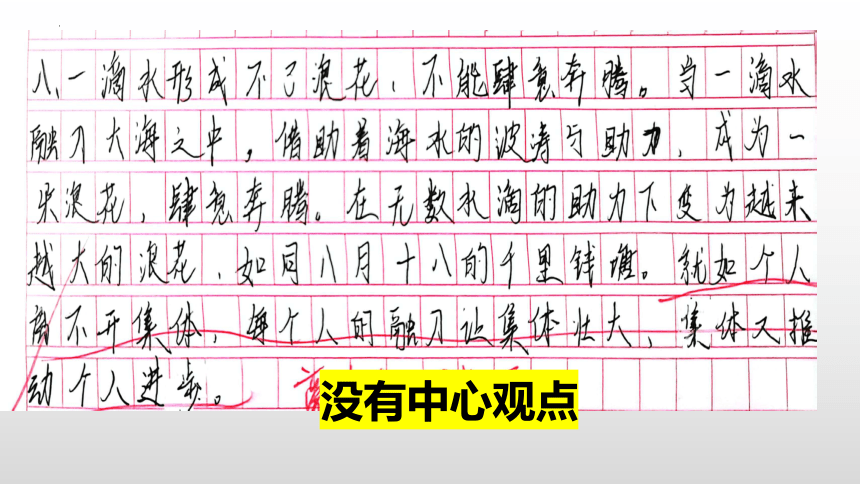 八、一滴水形成不了浪花,不能肆意奔腾。当一滴水
融入大海之中,借助着海水的波涛与助力,成为一
朵浪花,肆意奔腾。在无数水滴的助力下变为越来
越大的浪花,如同八月十八的千里钱塘。就如个人
离不开集体,每个人的融入让集体壮大,集体又推
动个人进步。
没有中心观点